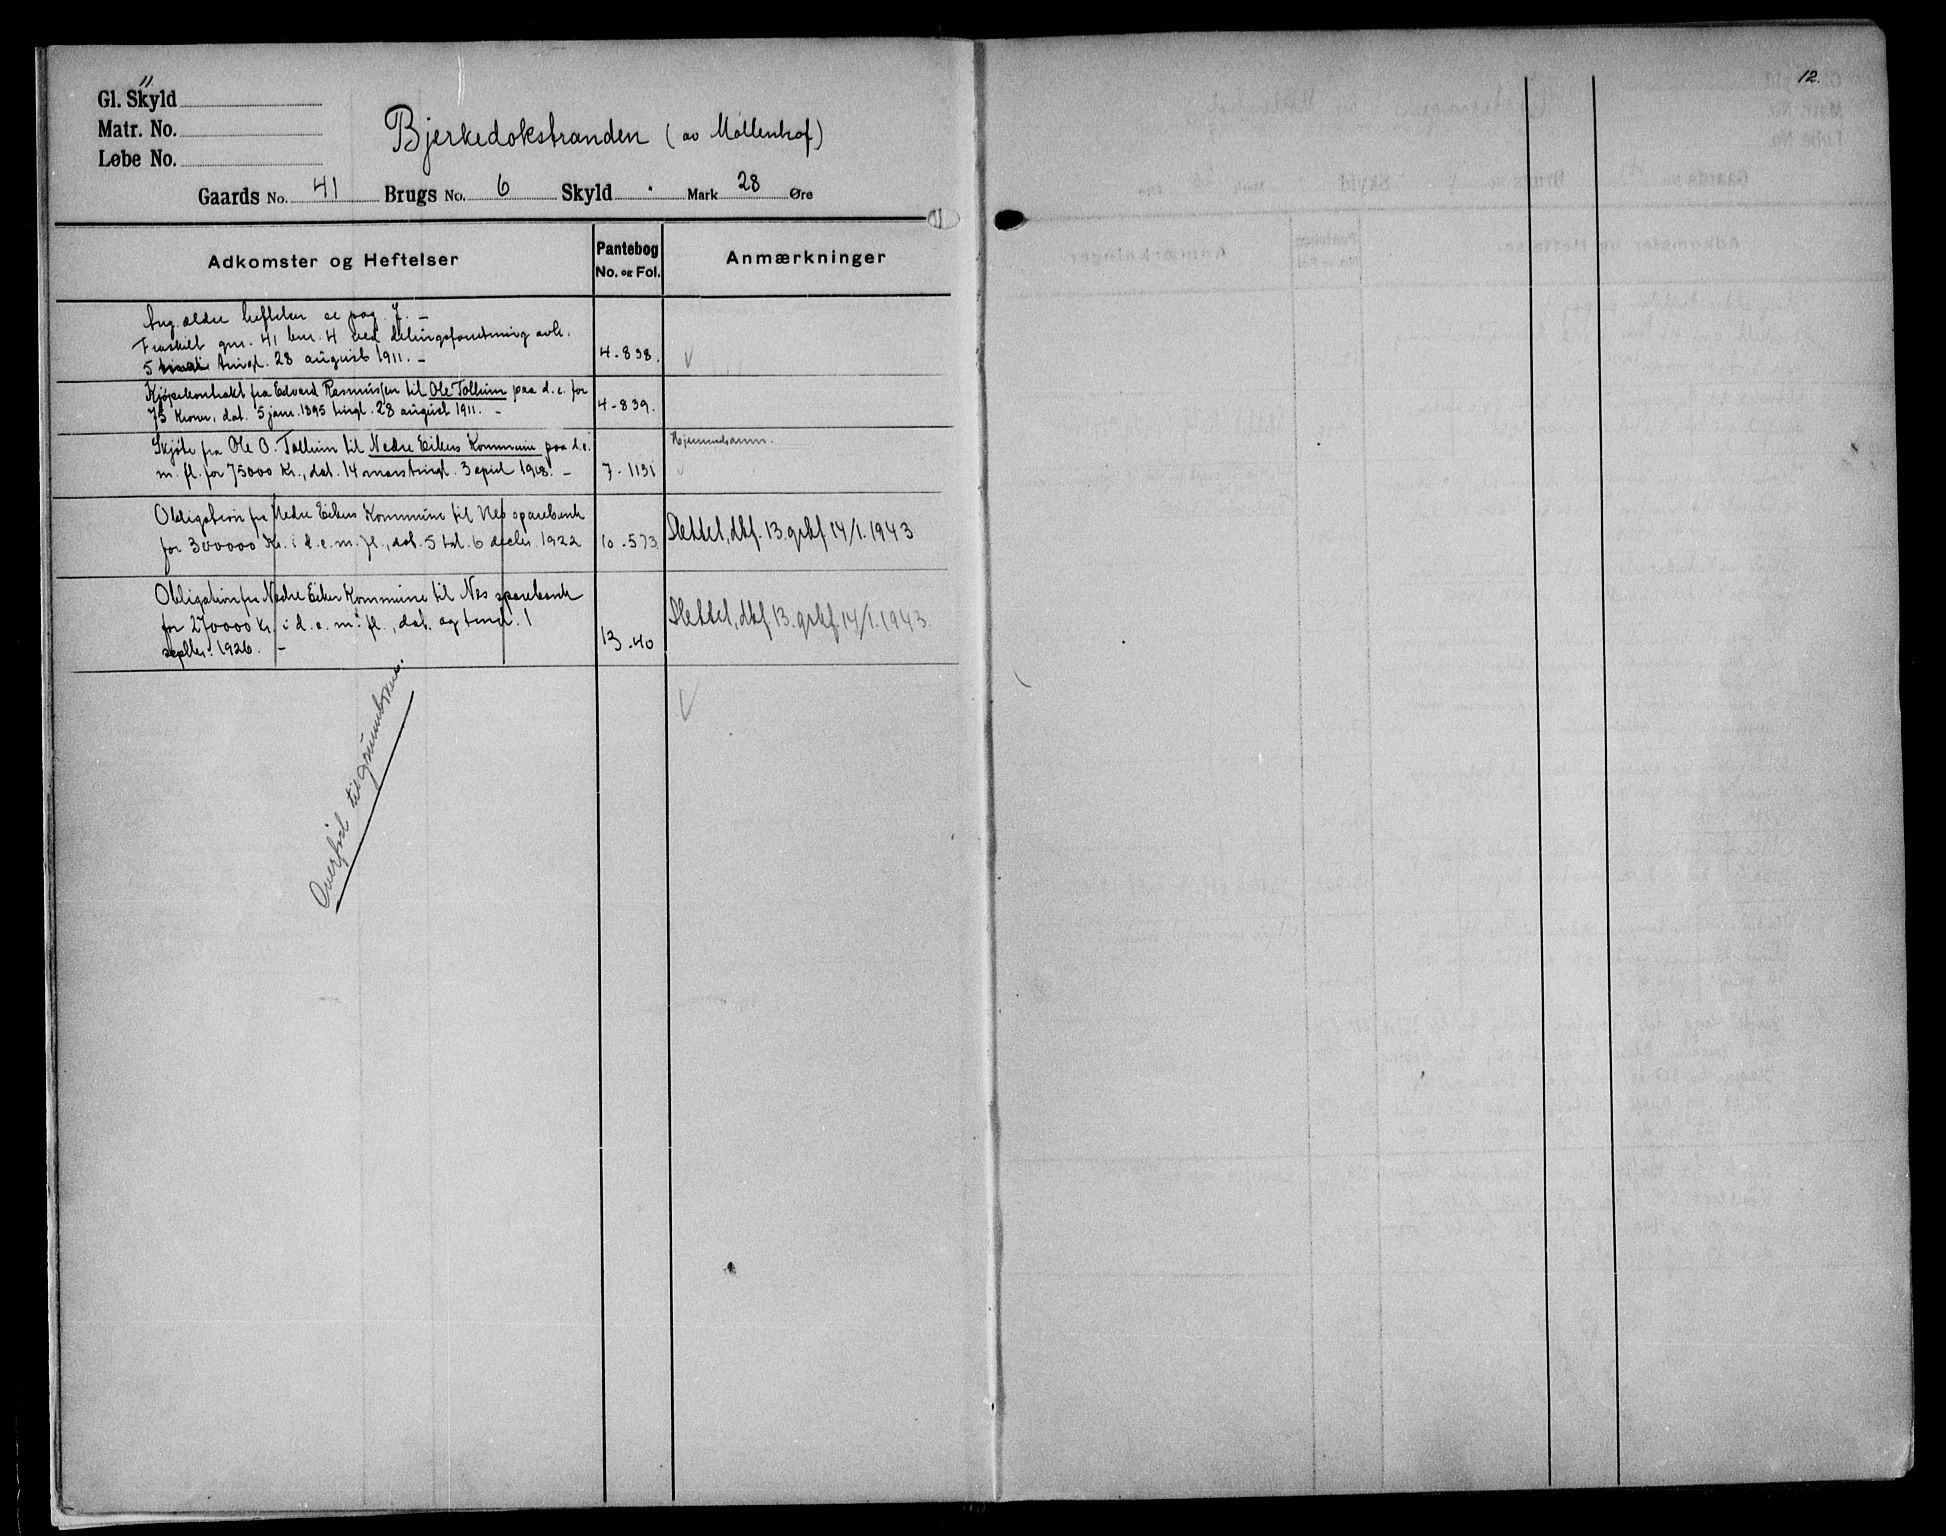 11.
Gl. Skyld
Matr. No.
Løbe No.
Bjerkedokstranden (av Møllenhof)
Gaards No. 41 Brugs No. 6 Skyld . Mark 28 Øre
Adkomster og Heftelser
Pantebog
No. og Fol.
Anmærkninger
Ang. ældre heftelser se pag. 7. –
Fraskilt gnr. 41 bnr. 4 ved delingsforretning avh.
5 tingl. 28 august 1911. –
4-838.
Kjøpekontrakt fra Edvard Rasmussen til Ole Tollum paa d. e. for
75 Kroner, dat. 5 jan. 1895 tingl. 28 august 1911. –
4-839.
Skjøte fra Ole O. Tollum til Nedre Eikers Kommune paa d. e.
m. fl. for 75000 Kr., dat. 14 mars tingl. 3 april 1918. –
7-1131
Hjemmelsanm.
Obligation fra Nedre Eikers Kommune til Nes sparebank
for 300000 Kr. i d. e. m. fl., dat. 5 tal. 6 decbr. 1922
10-573
Slettet, dbf. 13. grbf 14/1. 1943
Obligation fra Nedre Eiker Kommune til Nes sparebank
for 270000 Kr. i d. e. m. fl., dat. og 1
septbr. 1926. –
13-40
Slettet, dbf 13. grbf. 14/1. 1943.
Overført til grunnboken.
12.